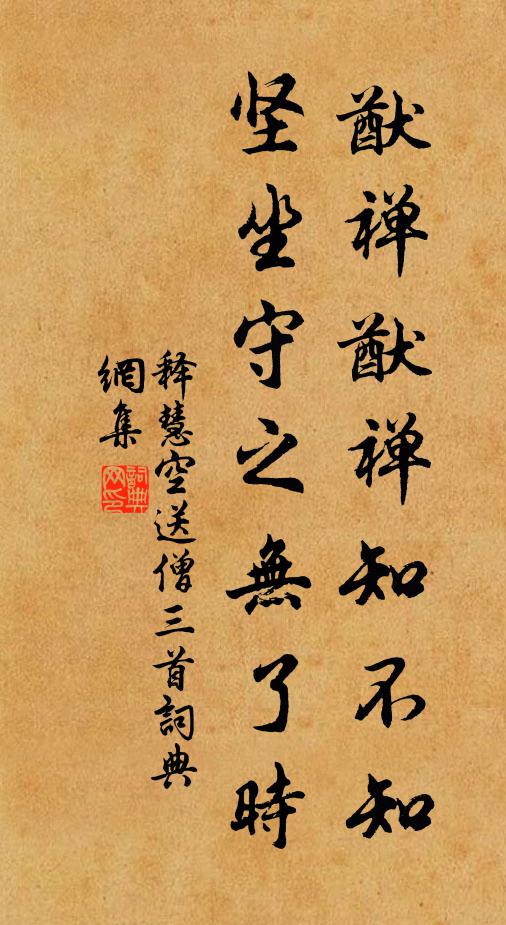 猷禅猷禅知不知
坚坐守之無了時
释慧空送僧三首詞典
網集
詞典
网印